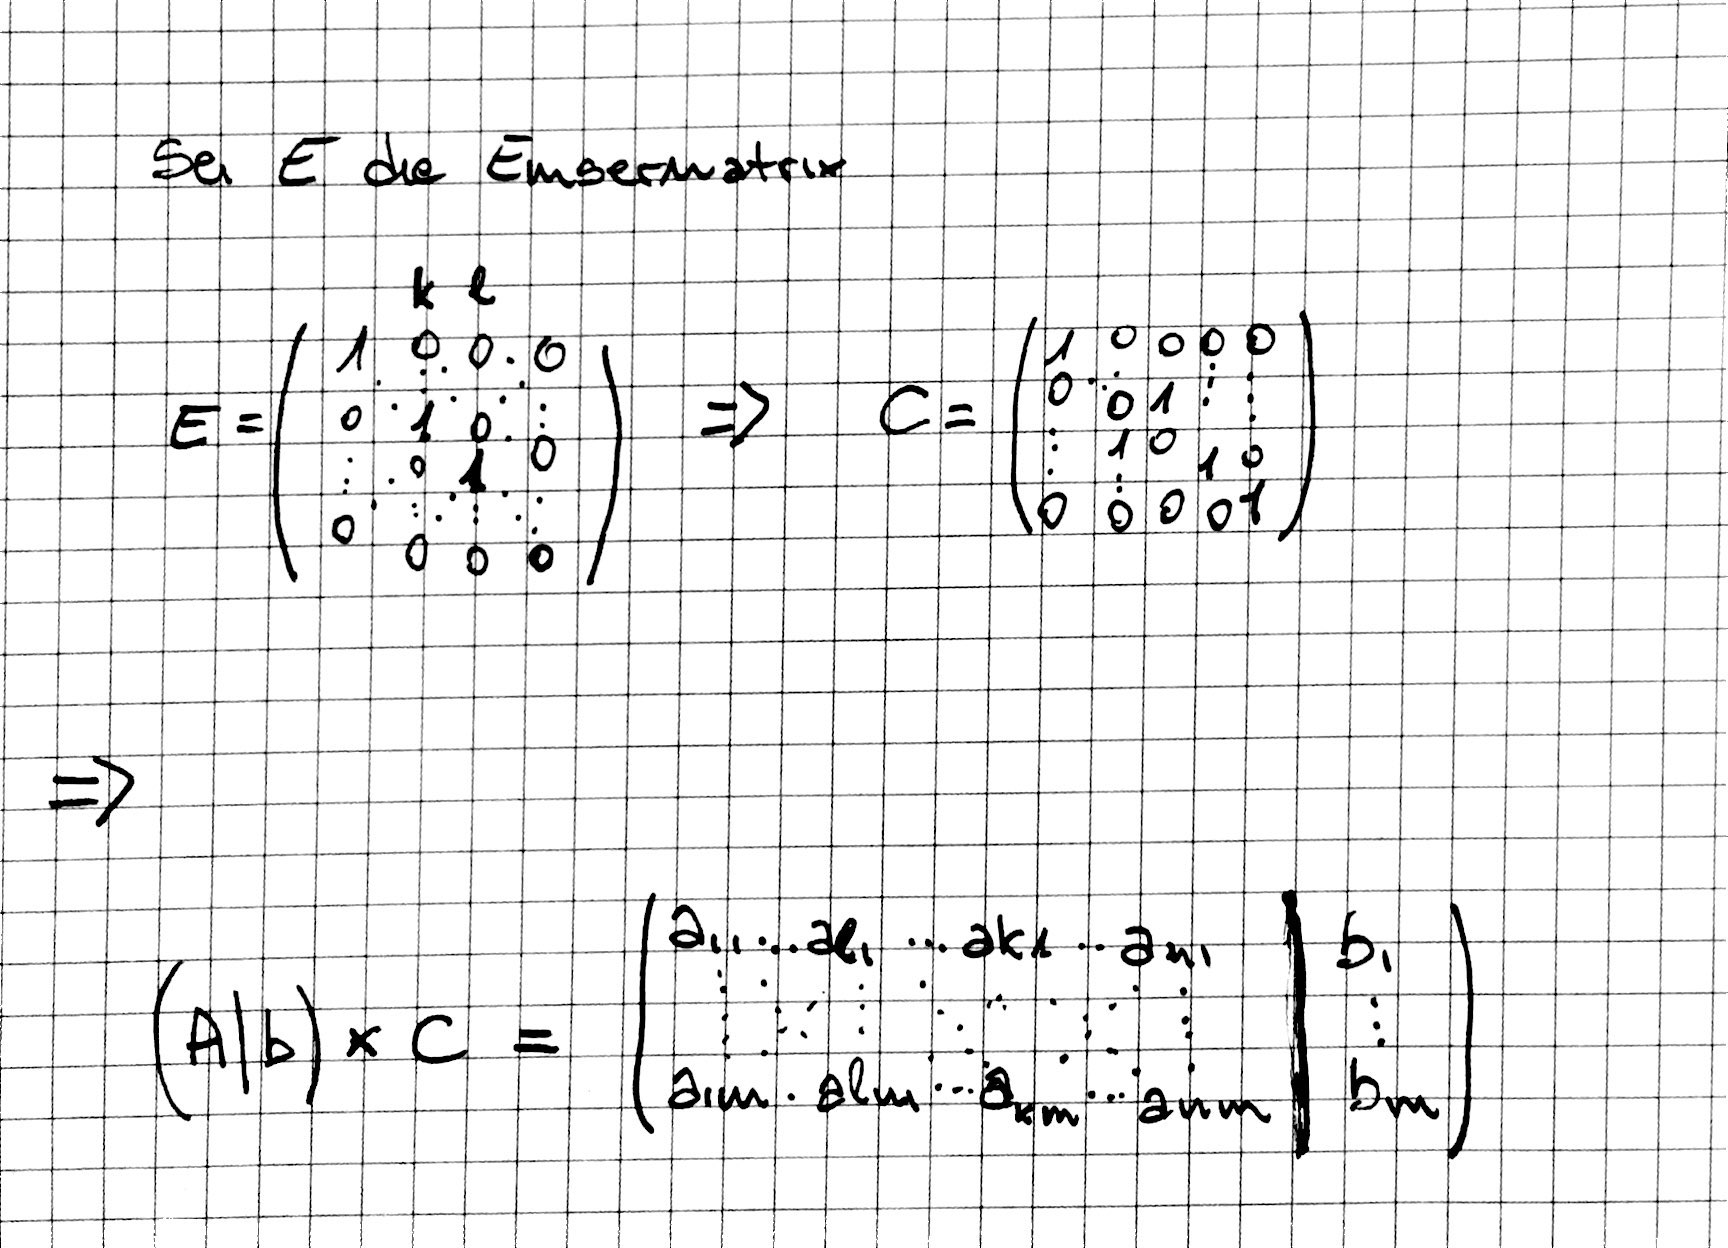 Sei E die Einsermatrix
k l
1 0 0 . 0
E = ( 0 . 1 0 . 0 ) => C = ( 1 0 0 0 0
0 0 1 0
0 0 0 0
0 0 1
1 0 1 0
0 0 0 0 1 )
=>
(A|b) * C = ( a11 ... al1 ... ak1 ... an1 | b1
a1m . alm ... akm ... anm | bm )